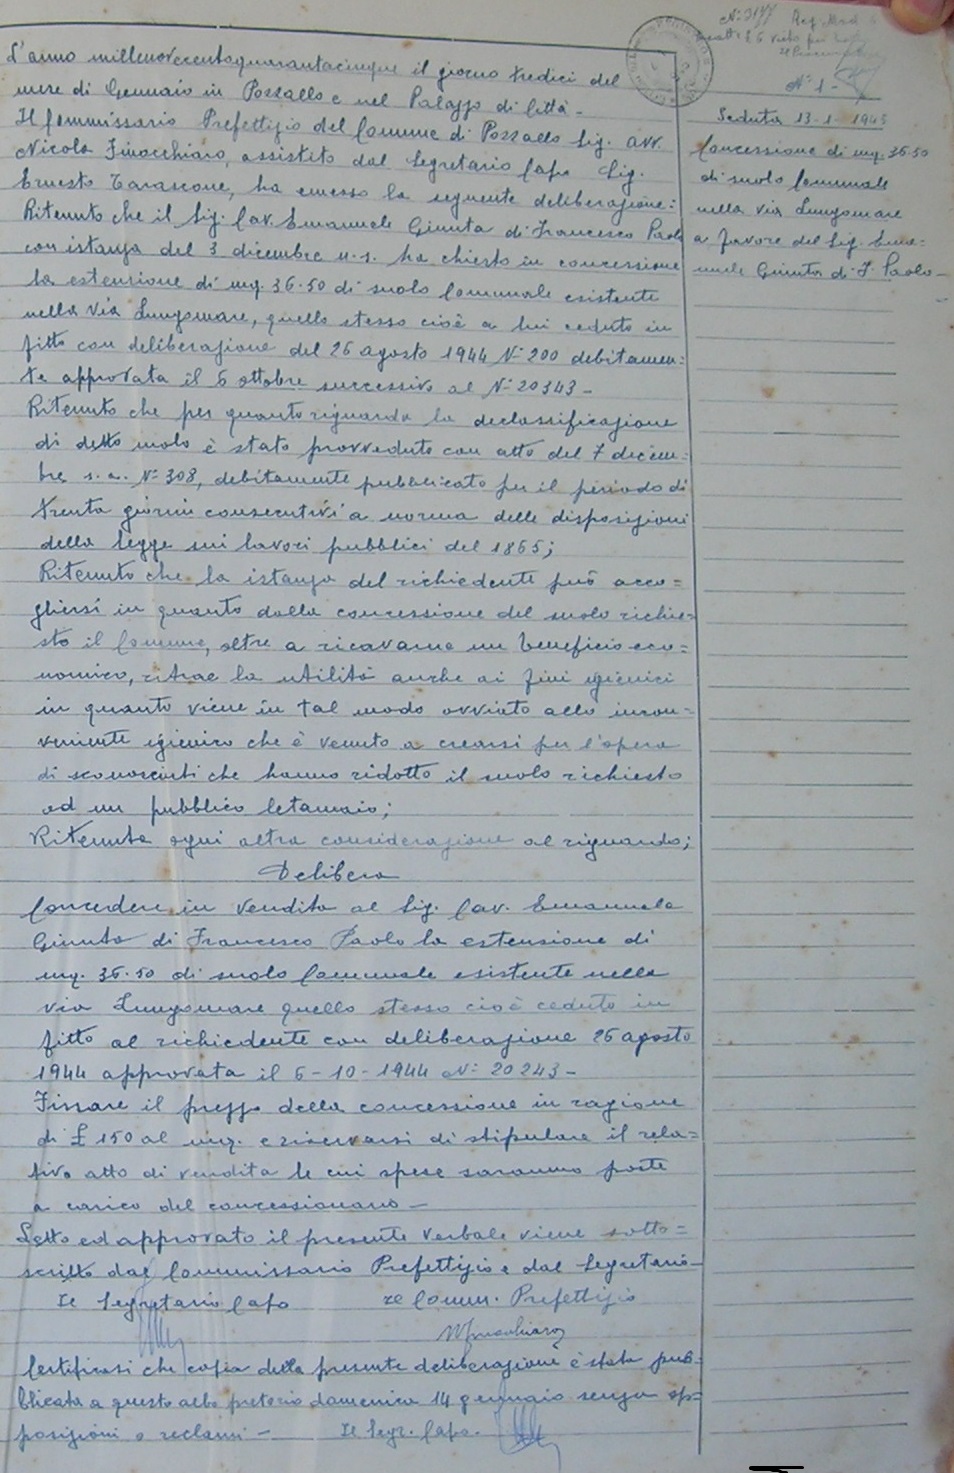 L'anno millenovecentoquarantacinque il giorno tredici del
mese di Gennaio in Pozzallo e nel Palazzo di Città -
Il Commissario Prefettizio del Comune di Pozzallo Sig. avv.
Nicola Finocchiaro, assistito dal Segretario Capo Sig.
Ernesto Tarascone, ha emesso la seguente deliberazione:
Ritenuto che il Sig. Cav. Emanuele Giunta di Francesco Paolo
con istanza del 3 dicembre u.s. ha chiesto in concessione
la estensione di mq. 36.50 di suolo Comunale esistente
nella via Lungomare, quello stesso cioè a lui ceduto in
fitto con deliberazione del 26 agosto 1944 N° 200 debitamen=
te approvata il 6 ottobre successivo al N° 20343 -
Ritenuto che per quanto riguarda la declassificazione
di detto suolo è stato provveduto con atto del 7 dicem=
bre s.a. N° 308, debitamente pubblicato per il periodo di
trenta giorni consecutivi a norma delle disposizioni
della legge sui lavori pubblici del 1865;
Ritenuto che la istanza del richiedente può acco=
gliersi in quanto dalla concessione del suolo richie=
sto il Comune, oltre a ricavarne un beneficio eco=
nomico, ritrae la utilità anche ai fini igienici
in quanto viene in tal modo ovviato allo incon=
veniente igienico che è venuto a crearsi per l'opera
di sconosciuti che hanno ridotto il suolo richiesto
ad un pubblico letamaio;
Ritenuta ogni altra considerazione al riguardo;
Delibera
Concedere in vendita al Sig. Cav. Emanuele
Giunta di Francesco Paolo la estensione di
mq. 36.50 di suolo Comunale esistente nella
via Lungomare quello stesso cioè ceduto in
fitto al richiedente con deliberazione 26 agosto
1944 approvata il 6-10-1944 N° 20243 -
Fissare il prezzo della concessione in ragione
di £ 150 al mq. e riservarsi di stipulare il rela=
tivo atto di vendita le cui spese saranno poste
a carico del concessionario -
Letto ed approvato il presente verbale viene sotto=
scritto dal Commissario Prefettizio e dal Segretario -
Il Segretario Capo Il Comm. Prefettizio
NFinocchiaro
Certificasi che copia della presente deliberazione è stata pub=
blicata a questo albo pretorio domenica 14 gennaio senza op=
posizioni o reclami - Il Segr. Capo.
N° 1 -
Seduta 13-1-1945
Concessione di mq. 36.50
di suolo Comunale
nella via Lungomare
a favore del Sig. Ema=
nuele Giunta di F. Paolo -